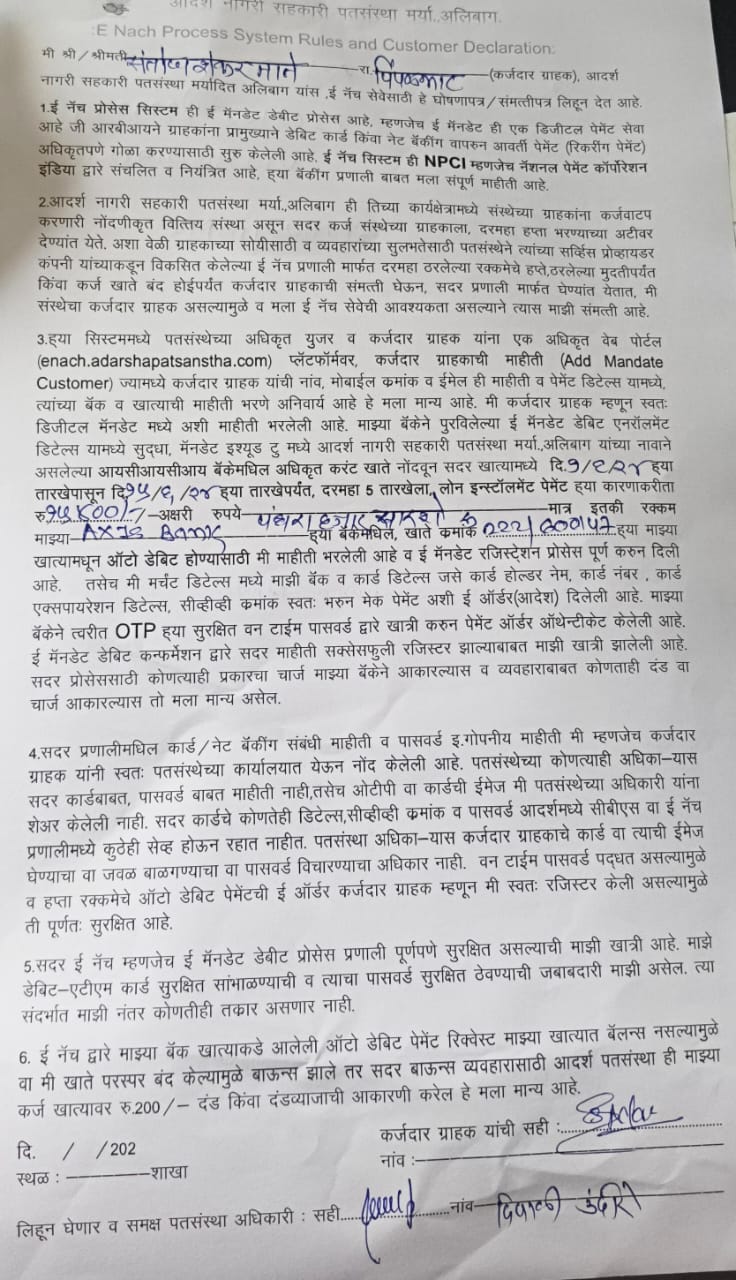 आदर्श नागरी सहकारी पतसंस्था मर्या.,अलिबाग.
:E Nach Process System Rules and Customer Declaration:
मी श्री/श्रीमती संतोष शंकर माने रा. पिंपळभाट (कर्जदार ग्राहक), आदर्श
नागरी सहकारी पतसंस्था मर्यादित अलिबाग यांस ,ई नॅच सेवेसाठी हे घोषणापत्र/संमत्तीपत्र लिहून देत आहे.
1.ई नॅच प्रोसेस सिस्टिम ही ई मॅनडेट डेबीट प्रोसेस आहे, म्हणजेच ई मॅनडेट ही एक डिजीटल पेमेंट सेवा
आहे जी आरबीआयने ग्राहकांना प्रामुख्याने डेबिट कार्ड किंवा नेट बॅकींग वापरुन आवर्ती पेमेंट (रिकरींग पेमेंट)
अधिकृतपणे गोळा करण्यासाठी सुरु केलेली आहे. ई नॅच सिस्टिम ही NPCI म्हणजेच नॅशनल पेमेंट कॉर्पोरेशन
इंडिया द्वारे संचलित व नियंत्रित आहे. ह्या बॅकींग प्रणाली बाबत मला संपूर्ण माहीती आहे.
2.आदर्श नागरी सहकारी पतसंस्था मर्या.,अलिबाग ही तिच्या कार्यक्षेत्रामध्ये संस्थेच्या ग्राहकांना कर्जवाटप
करणारी नोंदणीकृत वित्तिय संस्था असून सदर कर्ज संस्थेच्या ग्राहकाला, दरमहा हप्ता भरण्याच्या अटीवर
देण्यांत येते. अशा वेळी ग्राहकाच्या सोयीसाठी व व्यवहारांच्या सुलभतेसाठी पतसंस्थेने त्यांच्या सर्व्हिस प्रोव्हायडर
कंपनी यांच्याकडून विकसित केलेल्या ई नॅच प्रणाली मार्फत दरमहा ठरलेल्या रक्कमेचे हप्ते,ठरलेल्या मुदतीपर्यत
किंवा कर्ज खाते बंद होईपर्यत कर्जदार ग्राहकाची संमत्ती घेऊन, सदर प्रणाली मार्फत घेण्यांत येतात, मी
संस्थेचा कर्जदार ग्राहक असल्यामुळे व मला ई नॅच सेवेची आवश्यकता असल्याने त्यास माझी संमत्ती आहे.
3.ह्या सिस्टिममध्ये पतसंस्थेच्या अधिकृत युजर व कर्जदार ग्राहक यांना एक अधिकृत वेब पोर्टल
(enach.adarshapatsanstha.com) प्लॅटफॉर्मवर, कर्जदार ग्राहकाची माहीती (Add Mandate
Customer) ज्यामध्ये कर्जदार ग्राहक यांची नांव, मोबाईल क्रमांक व ईमेल ही माहीती व पेमेंट डिटेल्स यामध्ये,
त्यांच्या बॅक व खात्याची माहीती भरणे अनिवार्य आहे हे मला मान्य आहे. मी कर्जदार ग्राहक म्हणून स्वतः
डिजीटल मॅनडेट मध्ये अशी माहीती भरलेली आहे. माझ्या बॅकेने पुरविलेल्या ई मॅनडेट डेबिट एनरॉलमेंट
डिटेल्स यामध्ये सुद्धा, मॅनडेट इश्यूड टु मध्ये आदर्श नागरी सहकारी पतसंस्था मर्या.,अलिबाग यांच्या नावाने
असलेल्या आयसीआयसीआय बॅकेमधिल अधिकृत करंट खाते नोंदवून सदर खात्यामध्ये दि. ह्या
तारखेपासून दि. ह्या तारखेपर्यंत, दरमहा 5 तारखेला, लोन इन्स्टॉलमेंट पेमेंट ह्या कारणाकरीता
रु. –अक्षरी रुपये पंधरा हजार मात्र इतकी रक्कम
माझ्या AXIS BANK ह्या बॅकेमधिल, खाते क्रमांक ह्या माझ्या
खात्यामधून ऑटो डेबिट होण्यासाठी मी माहीती भरलेली आहे व ई मॅनडेट रजिस्ट्रेशन प्रोसेस पूर्ण करुन दिली
आहे. तसेच मी मर्चंट डिटेल्स मध्ये माझी बॅक व कार्ड डिटेल्स जसे कार्ड होल्डर नेम, कार्ड नंबर , कार्ड
एक्सपायरेशन डिटेल्स, सीव्हीव्ही क्रमांक स्वतः भरुन मेक पेमेंट अशी ई ऑर्डर(आदेश) दिलेली आहे. माझ्या
बॅकेने त्वरीत OTP ह्या सुरक्षित वन टाईम पासवर्ड द्वारे खात्री करुन पेमेंट ऑर्डर ऑथेन्टीकेट केलेली आहे.
ई मॅनडेट डेबिट कन्फर्मेशन द्वारे सदर माहीती सक्सेसफुली रजिस्टर झाल्याबाबत माझी खात्री झालेली आहे.
सदर प्रोसेससाठी कोणत्याही प्रकारचा चार्ज माझ्या बॅकेने आकारल्यास व व्यवहाराबाबत कोणताही दंड वा
चार्ज आकारल्यास तो मला मान्य असेल.
4.सदर प्रणालीमधिल कार्ड/नेट बॅकींग संबंधी माहीती व पासवर्ड इ.गोपनीय माहीती मी म्हणजेच कर्जदार
ग्राहक यांनी स्वतः पतसंस्थेच्या कार्यालयात येऊन नोंद केलेली आहे. पतसंस्थेच्या कोणत्याही अधिका–यास
सदर कार्डबाबत, पासवर्ड बाबत माहीती नाही,तसेच ओटीपी वा कार्डची ईमेज मी पतसंस्थेच्या अधिकारी यांना
शेअर केलेली नाही. सदर कार्डचे कोणतेही डिटेल्स,सीव्हीव्ही क्रमांक व पासवर्ड आदर्शमध्ये सीबीएस वा ई नॅच
प्रणालीमध्ये कुठेही सेव्ह होऊन रहात नाहीत. पतसंस्था अधिका–यास कर्जदार ग्राहकाचे कार्ड वा त्याची ईमेज
घेण्याचा वा जवळ बाळगण्याचा वा पासवर्ड विचारण्याचा अधिकार नाही. वन टाईम पासवर्ड पद्धत असल्यामुळे
व हप्ता रक्कमेचे ऑटो डेबिट पेमेंटची ई ऑर्डर कर्जदार ग्राहक म्हणून मी स्वतः रजिस्टर केली असल्यामुळे
ती पूर्णतः सुरक्षित आहे.
5.सदर ई नॅच म्हणजेच ई मॅनडेट डेबीट प्रोसेस प्रणाली पूर्णपणे सुरक्षित असल्याची माझी खात्री आहे. माझे
डेबिट–एटीएम कार्ड सुरक्षित सांभाळण्याची व त्याचा पासवर्ड सुरक्षित ठेवण्याची जबाबदारी माझी असेल. त्या
संदर्भात माझी नंतर कोणतीही तकार असणार नाही.
6. ई नॅच द्वारे माझ्या बॅक खात्याकडे आलेली ऑटो डेबिट पेमेंट रिक्वेस्ट माझ्या खात्यात बॅलन्स नसल्यामुळे
वा मी खाते परस्पर बंद केल्यामुळे बाऊन्स झाले तर सदर बाऊन्स व्यवहारासाठी आदर्श पतसंस्था ही माझ्या
कर्ज खात्यावर रु.200/– दंड किंवा दंडव्याजाची आकारणी करेल हे मला मान्य आहे.
कर्जदार ग्राहक यांची सही :
दि. / /202
नांव :
स्थळ : शाखा
लिहून घेणार व समक्ष पतसंस्था अधिकारी : सही नांव